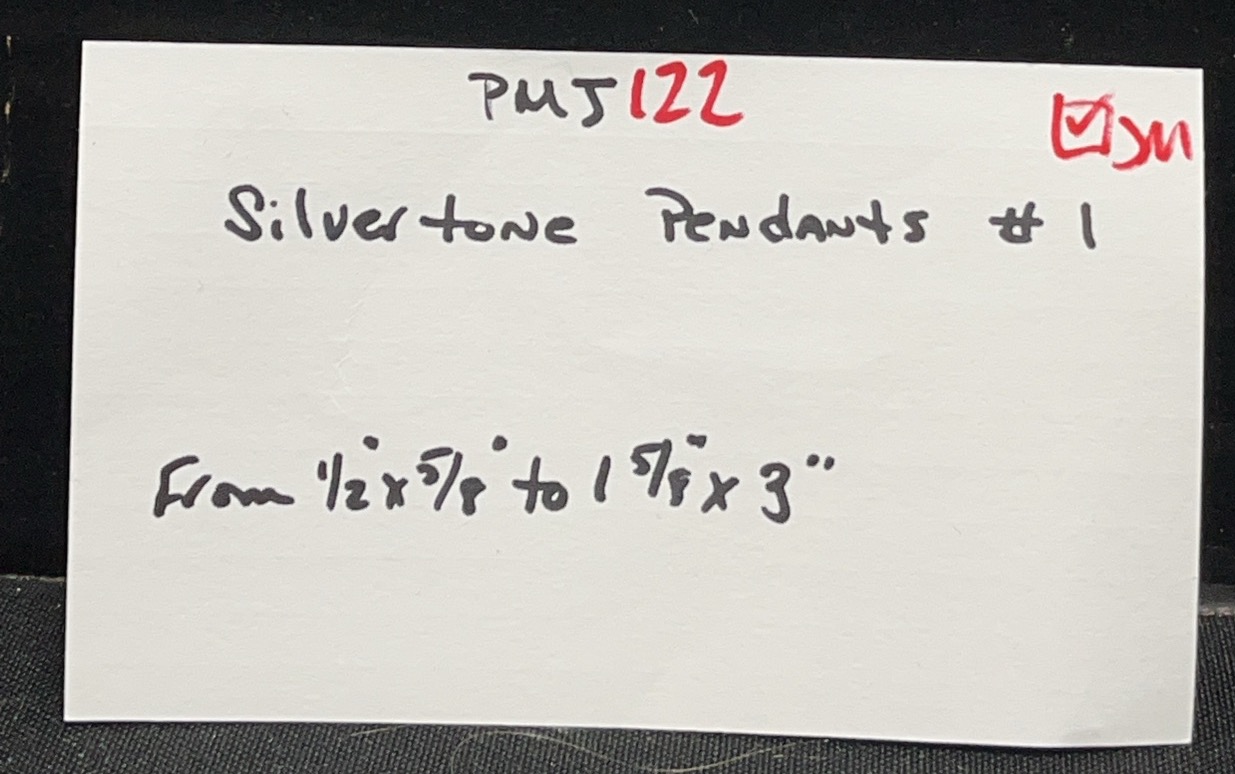 PMJ122
☑ JM
Silvertone Pendants # 1
From 1/2" x 5/8" to 1 5/8" x 3"